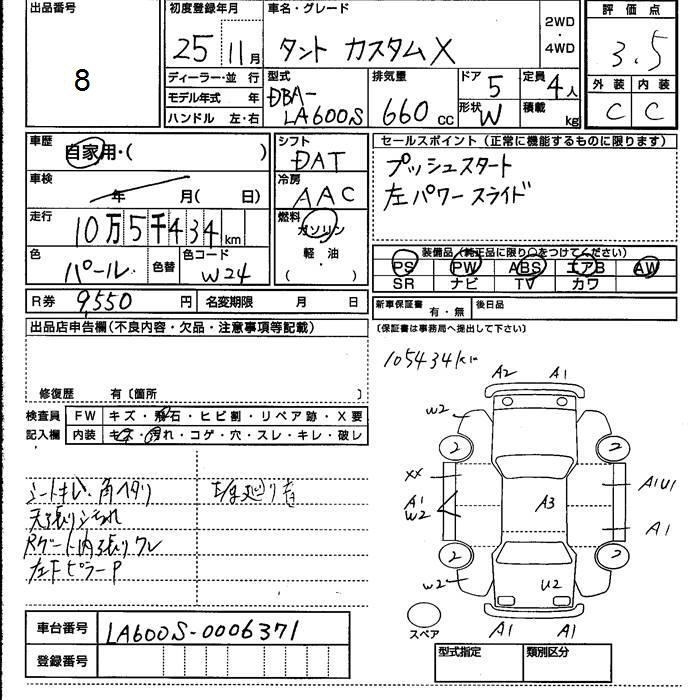 出品番号
8
初度登録年月
25 11月
車名・グレード
タント カスタムX
2WD
・
4WD
評価点
3.5
外装 内装
C C
ディーラー・並 行
モデル年式 年
ハンドル 左・右
型式
DBA-
LA600S
排気量
660 cc
ドア 5
形状 W
定員 4人
積載 kg
車歴
自家用・( )
車検
年 月( 日)
走行
10万5千434km
色
パール
色替
色コード
W24
シフト
DAT
冷房
AAC
燃料
ガソリン
軽・油
( )
セールスポイント(正常に機能するものに限ります)
プッシュスタート
左パワースライド
装備品(純正品に限り○をつけてください)
PS PW ABS エアB AW
SR ナビ TV カワ
R券 9,550 円 名変期限 月 日
新車保証書 有・無 後日品
(保証書は事務局へ提出して下さい)
出品店申告欄(不良内容・欠品・注意事項等記載)
修復歴 有〔箇所 〕
検査員
記入欄
FW キズ・飛石・ヒビ割・リペア跡・X要
内装 キズ・汚れ・コゲ・穴・スレ・キレ・破レ
シートキレ・角ヘタリ
天張りシミ汚れ
Rゲート内張りワレ
左FピラーP
105434km
A2 A1
W2
2 2
XX
A1
W2
A3
A1U1
A1
2 2
W2
U2
A1 A1
スペア
車台番号 LA600S-0006371
登録番号
型式指定 類別区分